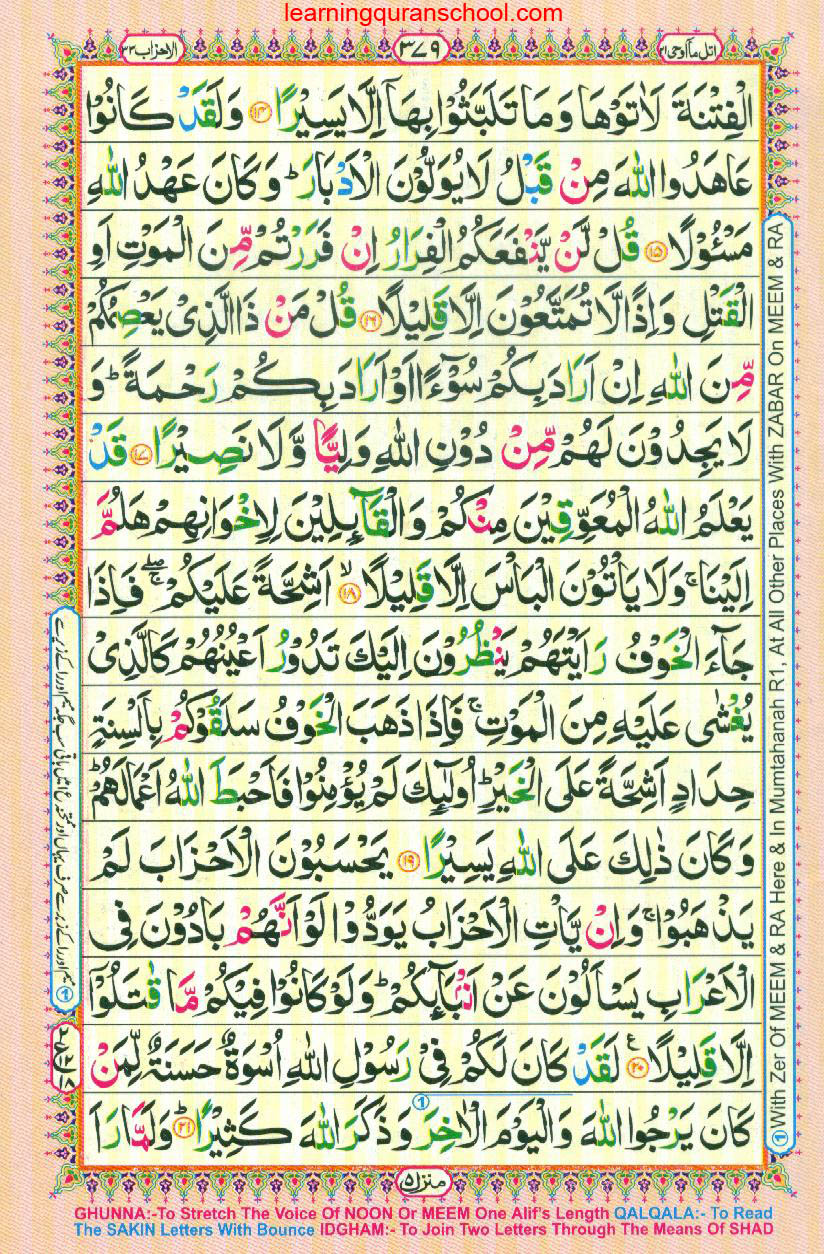 learningquranschool.com
اتل مآ اوحی ۲۱
۳۷۹
الاحزاب ۳۳
الْفِتْنَةَ لَاٰتَوْهَا وَمَا تَلَبَّثُوْا بِهَاۤ اِلَّا یَسِیْرًا ﴿۱۴﴾ وَلَقَدْ كَانُوْا
عَاهَدُوا اللّٰهَ مِنْ قَبْلُ لَا یُوَلُّوْنَ الْاَدْبَارَ ؕ وَكَانَ عَهْدُ اللّٰهِ
مَسْـُٔوْلًا ﴿۱۵﴾ قُلْ لَّنْ یَّنْفَعَكُمُ الْفِرَارُ اِنْ فَرَرْتُمْ مِّنَ الْمَوْتِ اَوِ
الْقَتْلِ وَاِذًا لَّا تُمَتَّعُوْنَ اِلَّا قَلِیْلًا ﴿۱۶﴾ قُلْ مَنْ ذَا الَّذِیْ یَعْصِمُكُمْ
مِّنَ اللّٰهِ اِنْ اَرَادَ بِكُمْ سُوْٓءًا اَوْ اَرَادَ بِكُمْ رَحْمَةً ؕ وَ
لَا یَجِدُوْنَ لَهُمْ مِّنْ دُوْنِ اللّٰهِ وَلِیًّا وَّلَا نَصِیْرًا ﴿۱۷﴾ قَدْ
یَعْلَمُ اللّٰهُ الْمُعَوِّقِیْنَ مِنْكُمْ وَالْقَآىِٕلِیْنَ لِاِخْوَانِهِمْ هَلُمَّ
اِلَیْنَا ۚ وَلَا یَاْتُوْنَ الْبَاْسَ اِلَّا قَلِیْلًا ﴿۱۸﴾ ۙ اَشِحَّةً عَلَیْكُمْ ۖۚ فَاِذَا
جَآءَ الْخَوْفُ رَاَیْتَهُمْ یَنْظُرُوْنَ اِلَیْكَ تَدُوْرُ اَعْیُنُهُمْ كَالَّذِیْ
یُغْشٰی عَلَیْهِ مِنَ الْمَوْتِ ۚ فَاِذَا ذَهَبَ الْخَوْفُ سَلَقُوْكُمْ بِاَلْسِنَةٍ
حِدَادٍ اَشِحَّةً عَلَی الْخَیْرِ ؕ اُولٰٓىِٕكَ لَمْ یُؤْمِنُوْا فَاَحْبَطَ اللّٰهُ اَعْمَالَهُمْ ؕ
وَكَانَ ذٰلِكَ عَلَی اللّٰهِ یَسِیْرًا ﴿۱۹﴾ یَحْسَبُوْنَ الْاَحْزَابَ لَمْ
یَذْهَبُوْا ۚ وَاِنْ یَّاْتِ الْاَحْزَابُ یَوَدُّوْا لَوْ اَنَّهُمْ بَادُوْنَ فِی
الْاَعْرَابِ یَسْاَلُوْنَ عَنْ اَنْۢبَآىِٕكُمْ ؕ وَلَوْ كَانُوْا فِیْكُمْ مَّا قٰتَلُوْۤا
اِلَّا قَلِیْلًا ﴿۲۰﴾ ع لَقَدْ كَانَ لَكُمْ فِیْ رَسُوْلِ اللّٰهِ اُسْوَةٌ حَسَنَةٌ لِّمَنْ
كَانَ یَرْجُوا اللّٰهَ وَالْیَوْمَ الْاٰخِرَ وَذَكَرَ اللّٰهَ كَثِیْرًا ﴿۲۱﴾ ؕ وَلَمَّا رَاَ
1
منزل ۵
1 With Zer Of MEEM & RA Here & In Mumtahanah R1, At All Other Places With ZABAR On MEEM & RA
GHUNNA:-To Stretch The Voice Of NOON Or MEEM One Alif's Length QALQALA:- To Read
The SAKIN Letters With Bounce IDGHAM:- To Join Two Letters Through The Means Of SHAD